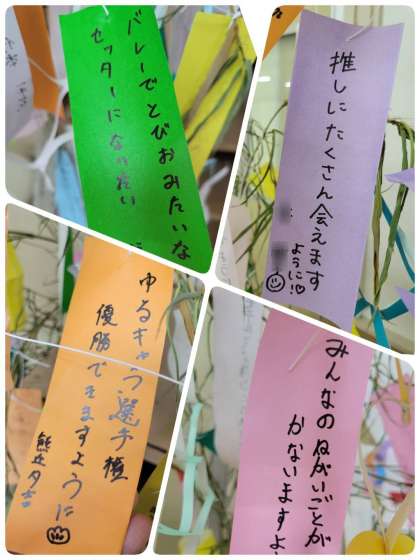 バレーでとびおみたいな
セッターになりたい
推しにたくさん会えます
ように!♡
ゆるキャラ選手権
優勝できますように
みんなのねがいごとが
かないますよ